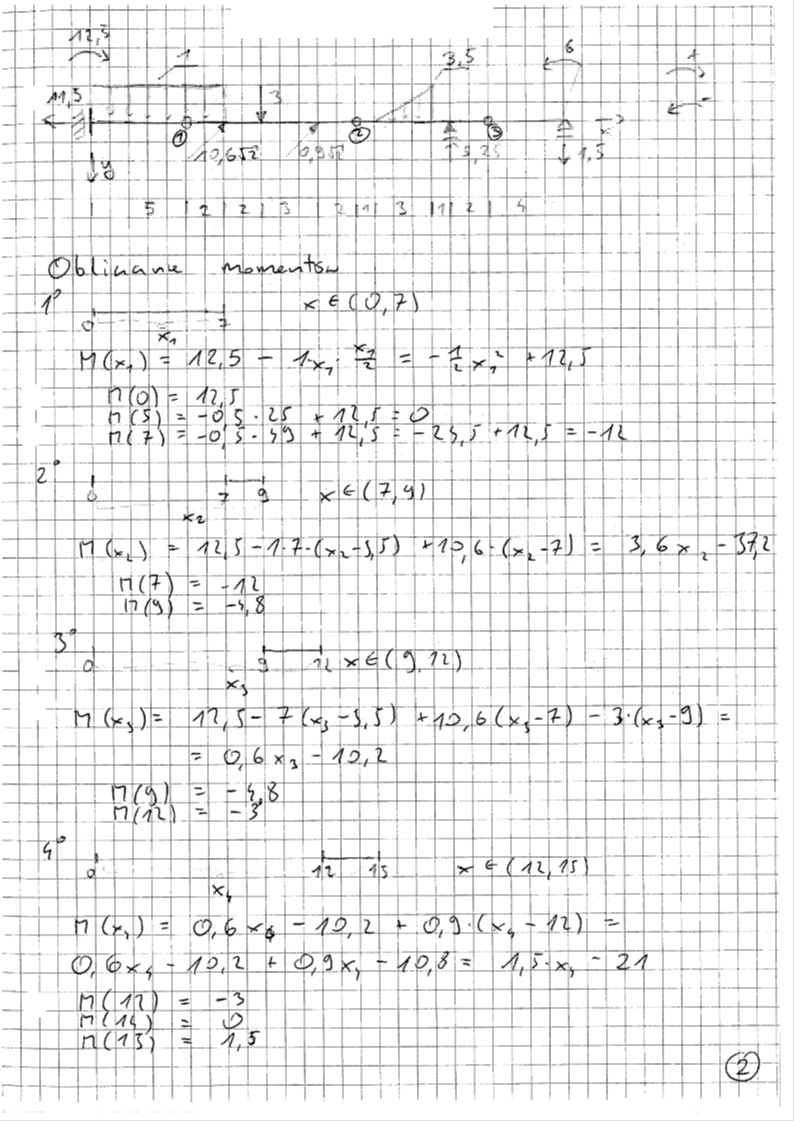 12,5 1 3,5 6 +
11,5 3 -
① ② ③ x
y 10,6√2 0,9√2 5,25 1,5
5 | 2 | 2 | 3 | 2 | 1 | 3 | 1 | 2 | 4
Obliczanie momentów
1° 0 7 x ∈ (0,7)
x₁
M(x₁) = 12,5 - 1·x₁ · x₁/2 = -1/2 x₁² + 12,5
M(0) = 12,5
M(5) = -0,5 · 25 + 12,5 = 0
M(7) = -0,5 · 49 + 12,5 = -24,5 + 12,5 = -12
2° 0 7 9 x ∈ (7,9)
x₂
M(x₂) = 12,5 - 1·7·(x₂-3,5) + 10,6·(x₂-7) = 3,6x₂ - 37,2
M(7) = -12
M(9) = -4,8
3° 0 9 12 x ∈ (9,12)
x₃
M(x₃) = 12,5 - 7(x₃-3,5) + 10,6(x₃-7) - 3·(x₃-9) =
= 0,6x₃ - 10,2
M(9) = -4,8
M(12) = -3
4° 0 12 15 x ∈ (12,15)
x₄
M(x₄) = 0,6x₄ - 10,2 + 0,9·(x₄-12) =
0,6x₄ - 10,2 + 0,9x₄ - 10,8 = 1,5·x₄ - 21
M(12) = -3
M(14) = 0
M(15) = 1,5
②